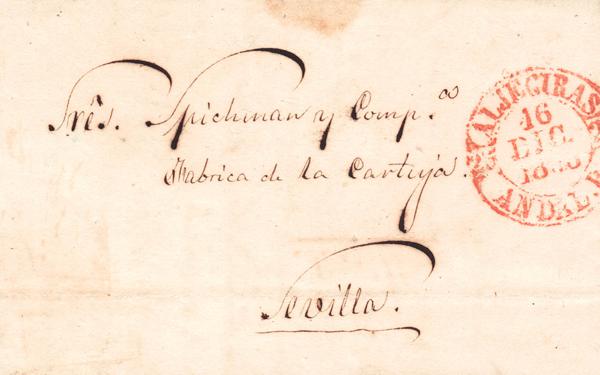 Srês. Spichman y Comp.as
Fabrica de la Cartuja.
Sevilla.
ALJECIRAS
16
DIC.
ANDAL. B